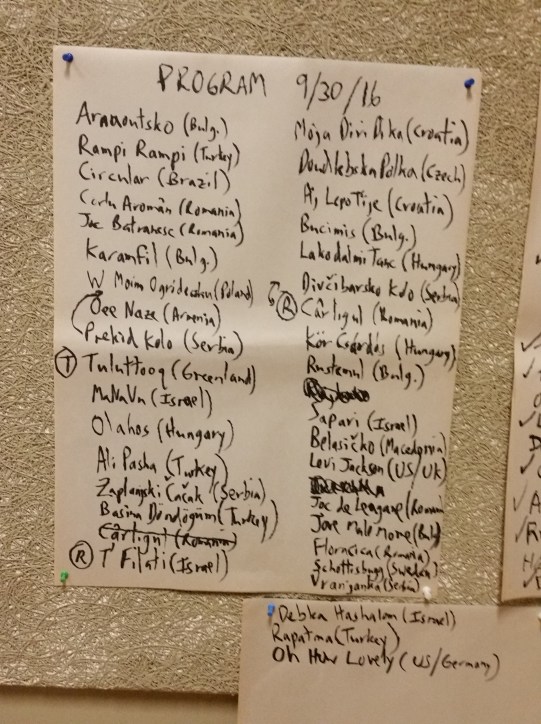 PROGRAM 9/30/16
Arnaoutsko (Bulg.)
Rampi Rampi (Turkey)
Circular (Brazil)
Certu Aromân (Romania)
Joc Batranesc (Romania)
Karamfil (Bulg.)
W Moim Ogrodecku (Poland)
Oee Naze (Armenia)
Prekid Kolo (Serbia)
T Tuluttooq (Greenland)
MaNaVu (Israel)
Olahos (Hungary)
Ali Pasha (Turkey)
Zaplanjski Čačak (Serbia)
Basina Döndögüm (Turkey)
Cârligul (Romania)
R T'Filati (Israel)
Moja Diridika (Croatia)
Doudlebska Polka (Czech)
Aj, Lepo Tije (Croatia)
Bucimis (Bulg.)
Lakodalmi Tanc (Hungary)
Divčibarsko Kolo (Serbia)
R Cârligul (Romania)
Kör Csárdás (Hungary)
Rustemul (Bulg.)
Sapari (Israel)
Belasičko (Macedonia)
Levi Jackson (US/UK)
Joc de Leagane (Romani
Jove Malo Mome (Bulg
Floricica (Romania)
Schottisbygg (Sweden)
Vranjanka (Serbia)
Debka Hashalom (Israel)
Rapatma (Turkey)
Oh How Lovely (US/Germany)